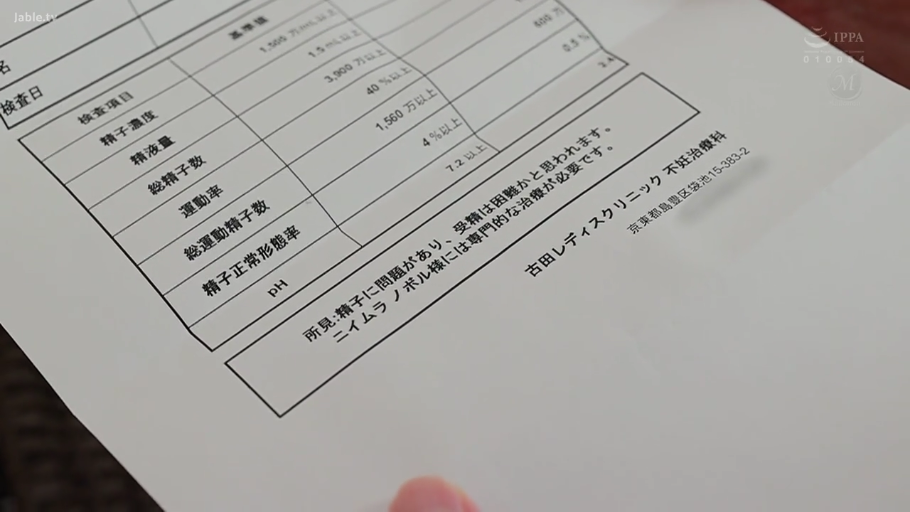 Jable.tv
IPPA
010004
M
名
検査日
検査項目
基準値
精子濃度
精液量
1.5 mL以上
総精子数
3,900 万以上
運動率
40 %以上
600 万
総運動精子数
1,560 万以上
0.5 %
精子正常形態率
4 %以上
pH
7.2 以上
所見:精子に問題があり、受精は困難かと思われます。
ニイムラ ノボル様には専門的な治療が必要です。
古田レディスクリニック 不妊治療科
京東都島豊区袋池15-383-2